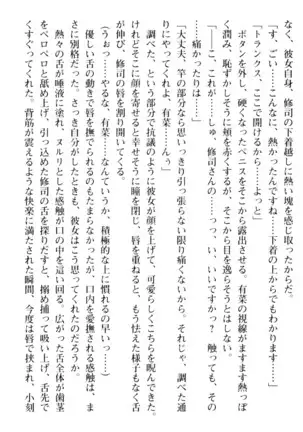 なく、彼女自身、修司の下着越しに熱い塊を感じ取ったからだ。
「す、ごい……こんなに、熱かったんですね……下着の上からでもわかります……」
「トランクス、ここで開けるから……よっと」
ボタンを外し、硬くなったペニスをそこから露出させる。有菜の視線がますます熱っぽ
く潤み、恥ずかしそうに頬を赤くするが、そこから目を逸らそうとはしない。
「こ、これが……しゅ、修司さんの……っ、いい、いいですか？　触っても、その、
……痛かったりは……」
「大丈夫、竿の部分なら思いっきり引っ張らない限り痛くないから。それじゃ、調べた通
りにやってくれよな、有菜……んっ」
調べた、という部分で抗議のように彼女が顔を上げて、可愛らしくこちらを睨んできた。
けれどそこに顔を寄せると幸せそうに瞳を閉じ、唇を重ねると、もう怯えた様子もなく舌
を伸び、修司の唇を割り開いてくる。
（うおっ……やるな、有菜……っていうか、積極的な上に慣れるの早いっ……）
優しい舌の動きで唇を撫でられるのもたまらなかったが、口内を愛撫される感触は、まさ
に別格だった。さっき自分がしたときも、彼女はこう思ってくれたのだろうか。
熱々の舌が唾液に塗れ、ヌルリとした感触が口の中を這い回る。広がった舌全体が歯茎
をベロベロと舐め上げ、引っ込めた修司の舌を探りだすと、搦め捕って吸い上げ、舌先で
くすぐる。背筋が震えるような快楽に満たされた瞬間、今度は唇で挟まれ、小刻